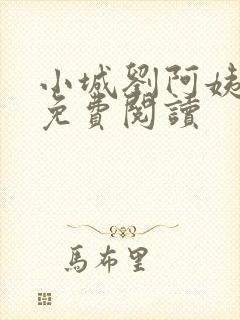 小城劉阿姨
免費閱讀
馬布里